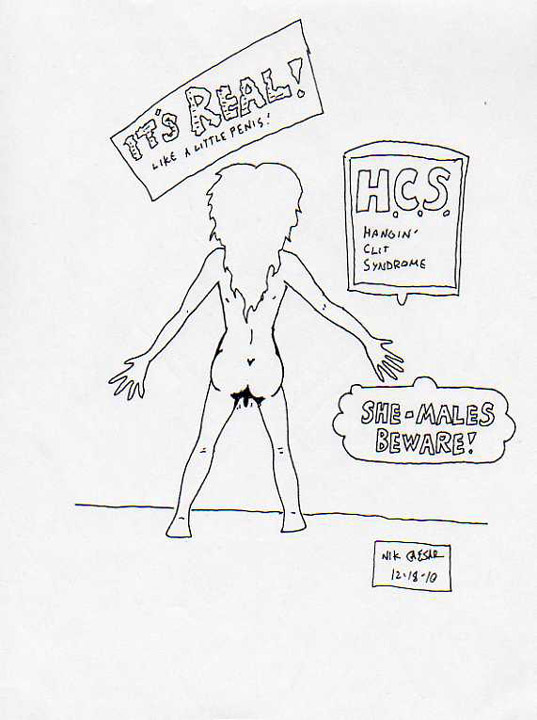 IT'S REAL!
LIKE A LITTLE PENIS!
H.C.S.
HANGIN'
CLIT
SYNDROME
SHE-MALES
BEWARE!
NIK CAESAR
12-18-10